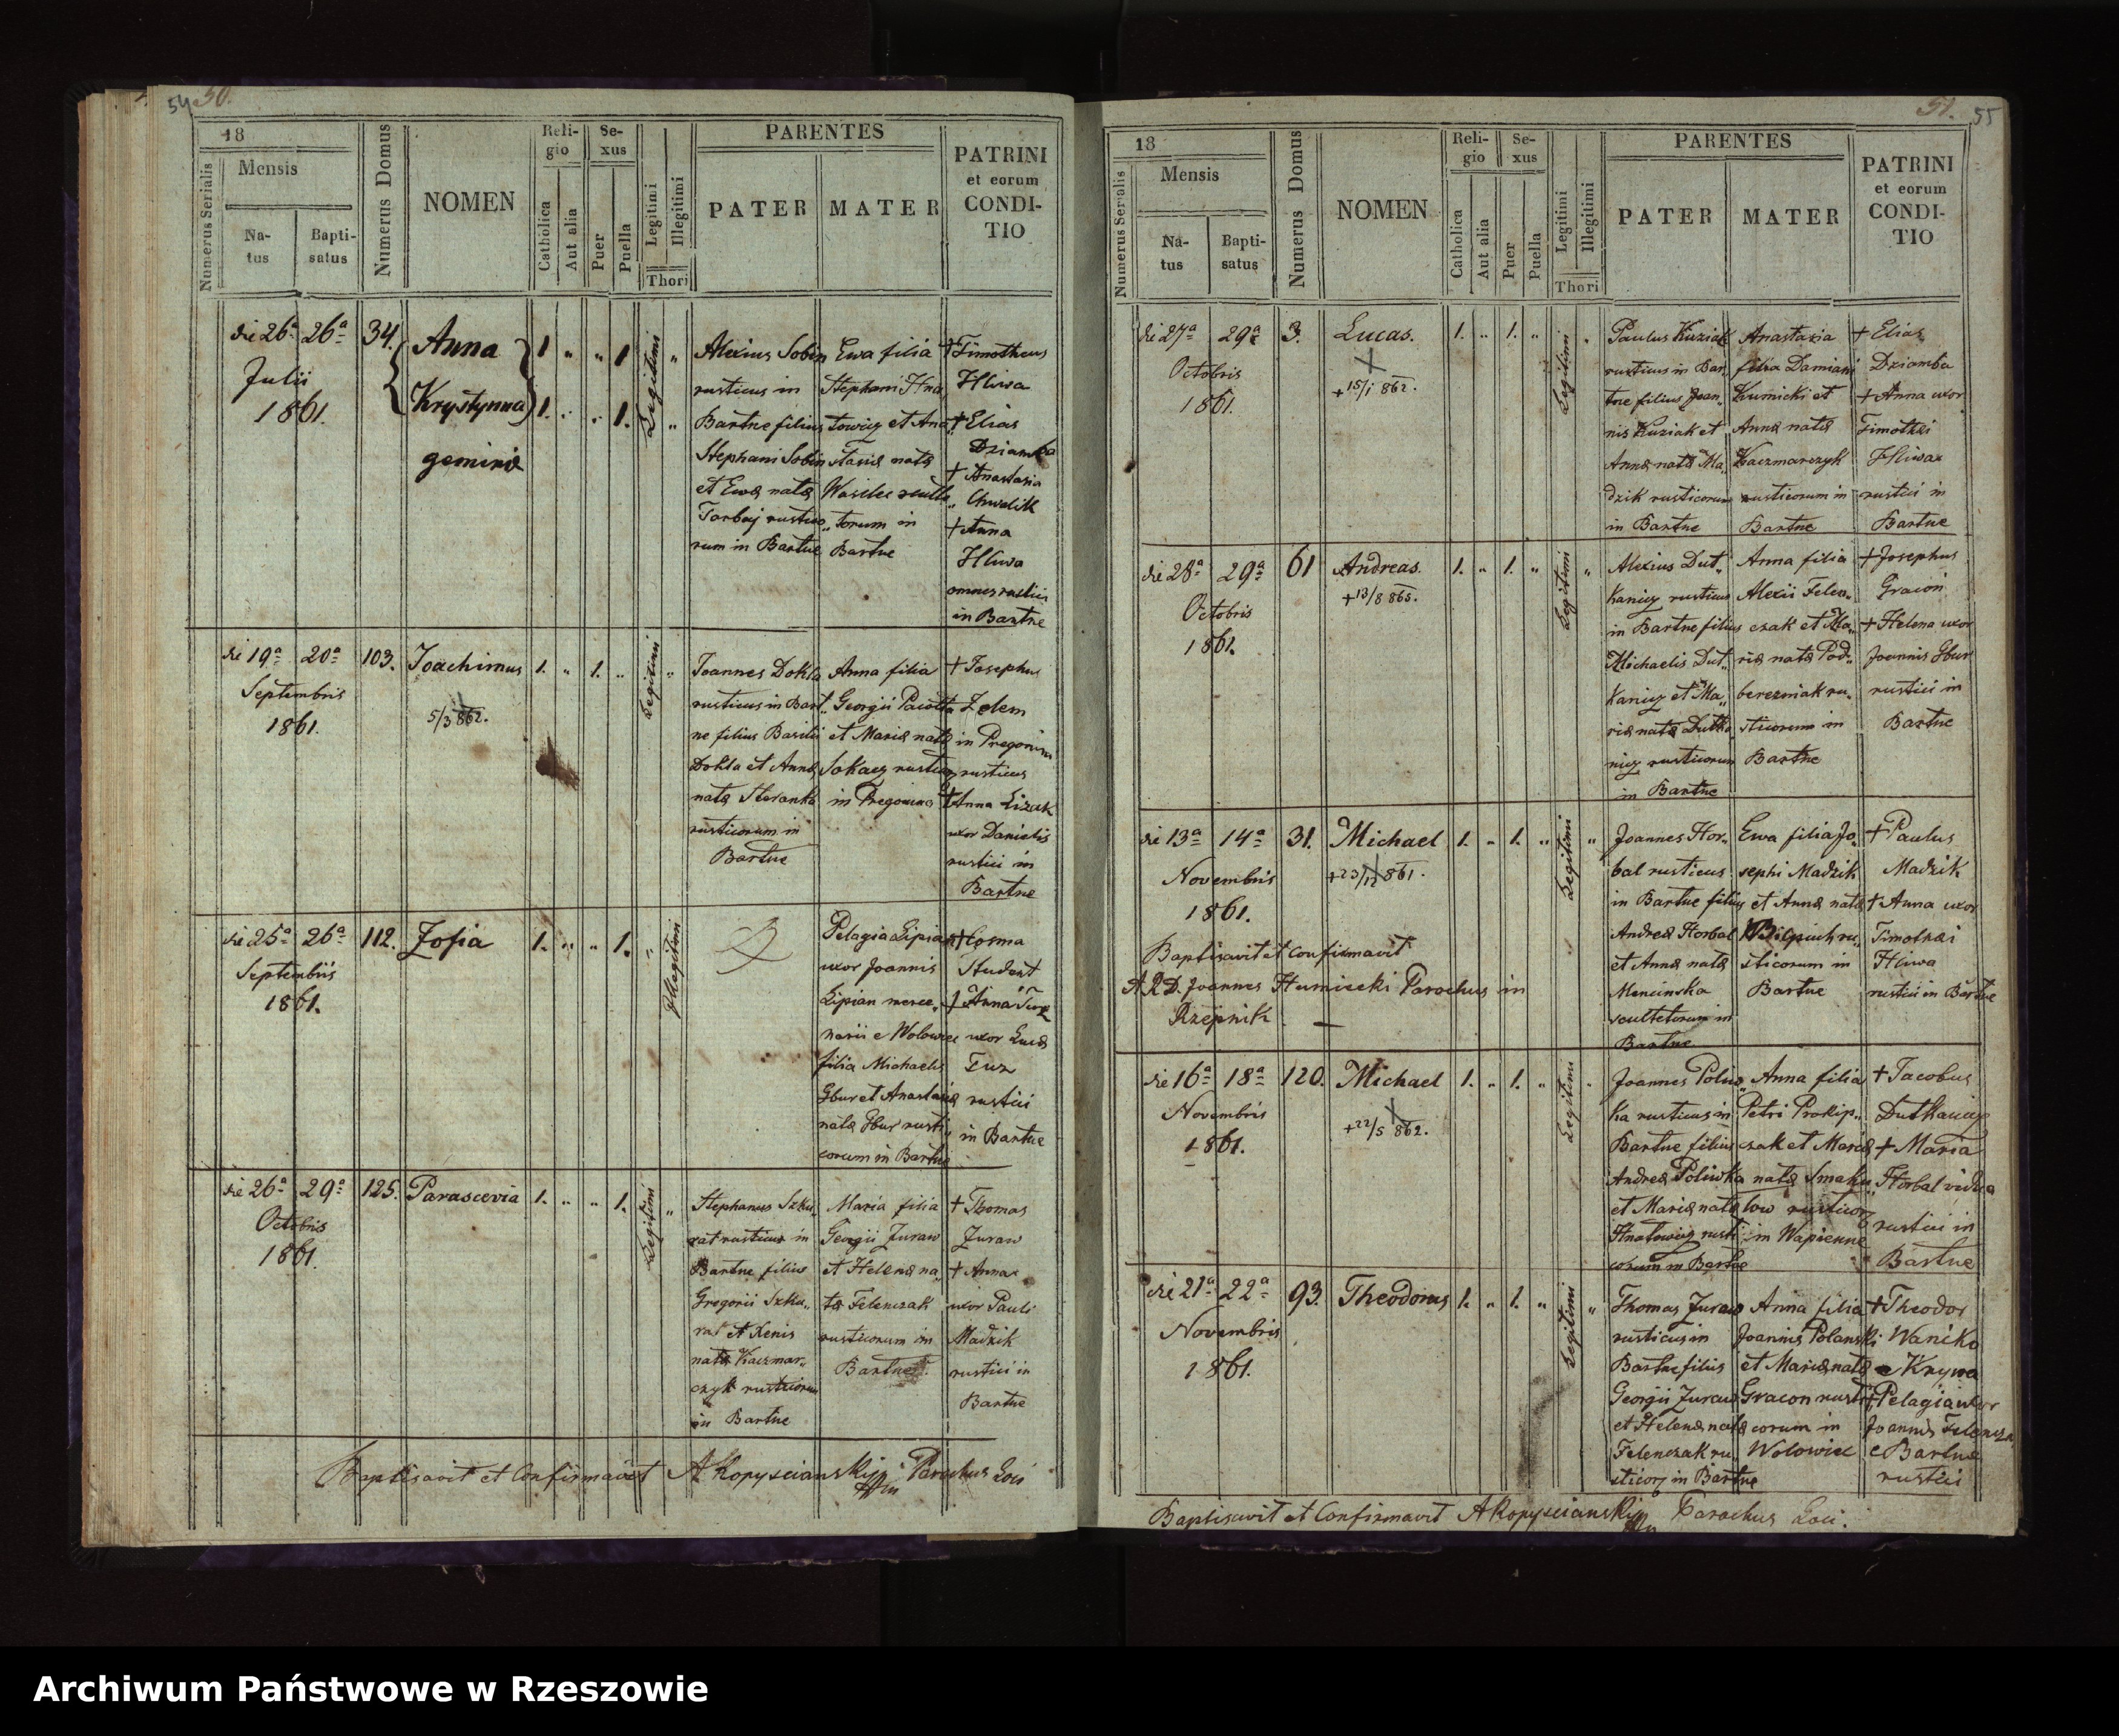 54 50.
18
Mensis
Numerus Serialis
Na-
tus
Bapti-
satus
Numerus Domus
NOMEN
Reli-
gio
Catholica
Aut alia
Se-
xus
Puer
Puella
Legitimi
Illegitimi
Thori
PARENTES
PATER
MATER
PATRINI
et eorum
CONDI-
TIO
die 26ª 26ª
Julii
1861.
34.
Anna
Krystynna
geminæ
1 " " 1
1. " " 1.
Legitimi "
Alexius Sobin
rusticus in
Bartne filius
Stephani Sobin
et Ewæ natæ
Torbaj rustico„
rum in Bartne
Ewa filia
Stephani Hna„
towicz et Ana„
stasiæ natæ
Wasilec scult„
torum in
Bartne
+ Timotheus
Hliwa
+ Elias
Dziamba
+ Anastasia
Chwalik
+ Anna
Hliwa
omnes rustici
in Bartne
die 19ª 20ª
Septembris
1861.
103.
Joachimus
5/3 862.
1. " 1. "
Legitimi "
Joannes Dokla
rusticus in Bart„
ne filius Basilii
Dokla et Annæ
natæ Steranka
rusticorum in
Bartne
Anna filia
Georgii Pacotta
et Mariæ natæ
Sokacz rusticorum
in Pregonina
+ Josephus
Zelem
in Pregonina
rusticus
+ Anna Lizak
uxor Danielis
rustici in
Bartne
die 25ª 26ª
Septembris
1861.
112.
Zofia
1. " " 1.
" Illegitimi
Pelagia Lipian
uxor Joannis
Lipian merce„
narii e Wolowiec
filia Michaelis
Gbur et Anastasiæ
natæ Gbur rusti„
corum in Bartne
+ Cosma
Student
+ Anna Tuz
uxor Lucæ
Tuz
rustici
in Bartne
die 26ª 29ª
Octobris
1861.
125.
Parascevia
1. " " 1.
Legitimi "
Stephanus Szku„
rat rusticus in
Bartne filius
Gregorii Szku„
rat et Xenis
natæ Kaczmar„
czyk rusticorum
in Bartne
Maria filia
Georgii Juraw
et Helenæ na„
tæ Felenczak
rusticorum in
Bartne
+ Thomas
Juraw
+ Anna
uxor Pauli
Madzik
rustici in
Bartne
Baptisavit et Confirmavit AKopyscianskij Parochus Loci
51. 55
18
Mensis
Numerus Serialis
Na-
tus
Bapti-
satus
Numerus Domus
NOMEN
Reli-
gio
Catholica
Aut alia
Se-
xus
Puer
Puella
Legitimi
Illegitimi
Thori
PARENTES
PATER
MATER
PATRINI
et eorum
CONDI-
TIO
die 27ª 29ª
Octobris
1861.
3.
Lucas.
+ 15/1 862.
1. " 1. "
Legitimi "
Paulus Kuziak
rusticus in Bar„
tne filius Joan„
nis Kuziak et
Annæ natæ Ma„
dzik rusticorum
in Bartne
Anastasia
filia Damiani
Kumicki et
Annæ natæ
Kaczmarczyk
rusticorum in
Bartne
+ Elias
Dziamba
+ Anna uxor
Timothei
Hliwa
rustici in
Bartne
die 28ª 29ª
Octobris
1861.
61
Andreas.
+ 13/8 865.
1. " 1. "
Legitimi "
Alexius Dut„
kanicz rusticus
in Bartne filius
Michaelis Dut„
kanicz et Ma„
riæ natæ Dutka
nicz rusticorum
in Bartne
Anna filia
Alexii Felen„
czak et Ma„
riæ natæ Pod„
berezniak ru„
sticorum in
Bartne
+ Josephus
Gracon
+ Helena uxor
Joannis Gbur
rustici in
Bartne
die 13ª 14ª
Novembris
1861.
31.
Michael
+ 23/12 861.
1. " 1. "
Legitimi "
Joannes Hor„
bal rusticus
in Bartne filius
Andreæ Horbal
et Annæ natæ
Mencinska
scultetorum in
Bartne
Ewa filia Jo„
sephi Madzik
et Annæ natæ
ru„
sticorum in
Bartne
+ Paulus
Madzik
+ Anna uxor
Timothei
Hliwa
rustici in Bartne
Baptisavit et Confirmavit
A.R.D. Joannes Humiecki Parochus in
Rzepnik —
die 16ª 18ª
Novembris
1861.
120.
Michael
+ 22/5 862.
1. " 1. "
Legitimi "
Joannes Poliw„
ka rusticus in
Bartne filius
Andreæ Poliwka
et Mariæ natæ
Hnatowicz rusti„
corum in Bartne
Anna filia
Petri Prokip„
czak et Mariæ
natæ Smaku„
low rusticorum
in Wapienne
+ Jacobus
Dutkanicz
+ Maria
Horbal vidua
rustici in
Bartne
die 21ª 22ª
Novembris
1861.
93.
Theodorus
1. " 1. "
Legitimi "
Thomas Juraw
rusticus in
Bartne filius
Georgii Juraw
et Helenæ natæ
Felenczak ru„
sticorum in Bartne
Anna filia
Joannis Polanski
et Mariæ natæ
Gracon rusti„
corum in
Wolowiec
+ Theodor
Wanćko
e Krywa
+ Pelagia uxor
Joannis Felenczak
e Bartne
rustici
Baptisavit et Confirmavit AKopyscianskij Parochus Loci.
Archiwum Państwowe w Rzeszowie